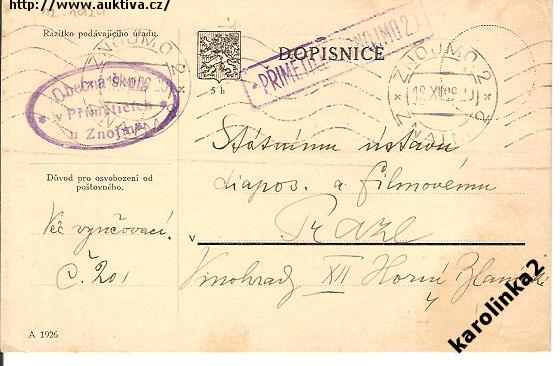 http://www.auktiva.cz/
Razítko podávajícího úřadu.
ZNOJMO 2
5 h
DOPISNICE
PŘÍMĚTICE ZNOJMO 2
ZNOJMO 2
18 XII 29
ZNAIM 2
Obecná škola
v Příměticích
u Znojma
Státnímu ústavu
diapos. a filmovému
Důvod pro osvobození od
poštovného.
v Praze
Věc vyučovací.
Č. 201
Vinohrad XII Horní
A 1926
karolinka2